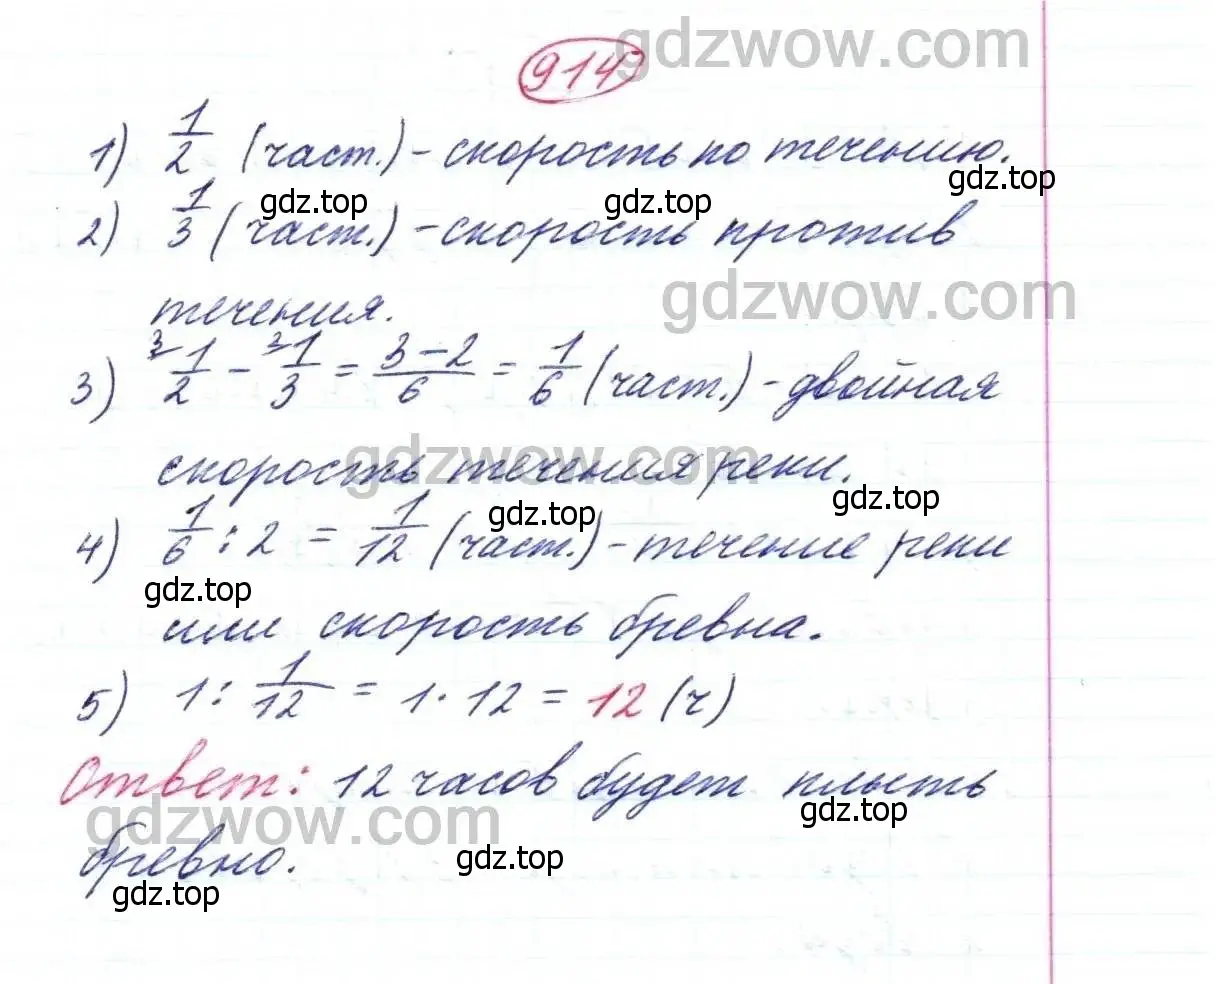 gdzwow.com
914
1) 1/2 (част.) - скорость по течению.
gdz.top gdz.top gdz.top
2) 1/3 (част.) - скорость против
течения.
gdzwow.com
3) ³1/2 - ²1/3 = 3-2/6 = 1/6 (част.) - двойная
скорость течения реки.
gdzwow.com
gdz.top gdz.top
4) 1/6 : 2 = 1/12 (част.) - течение реки
gdz.top
или скорость бревна.
5) 1 : 1/12 = 1 · 12 = 12 (ч)
Ответ: 12 часов будет плыть
gdzwow.com gdz.top
бревно.
gdz.top gdz.top